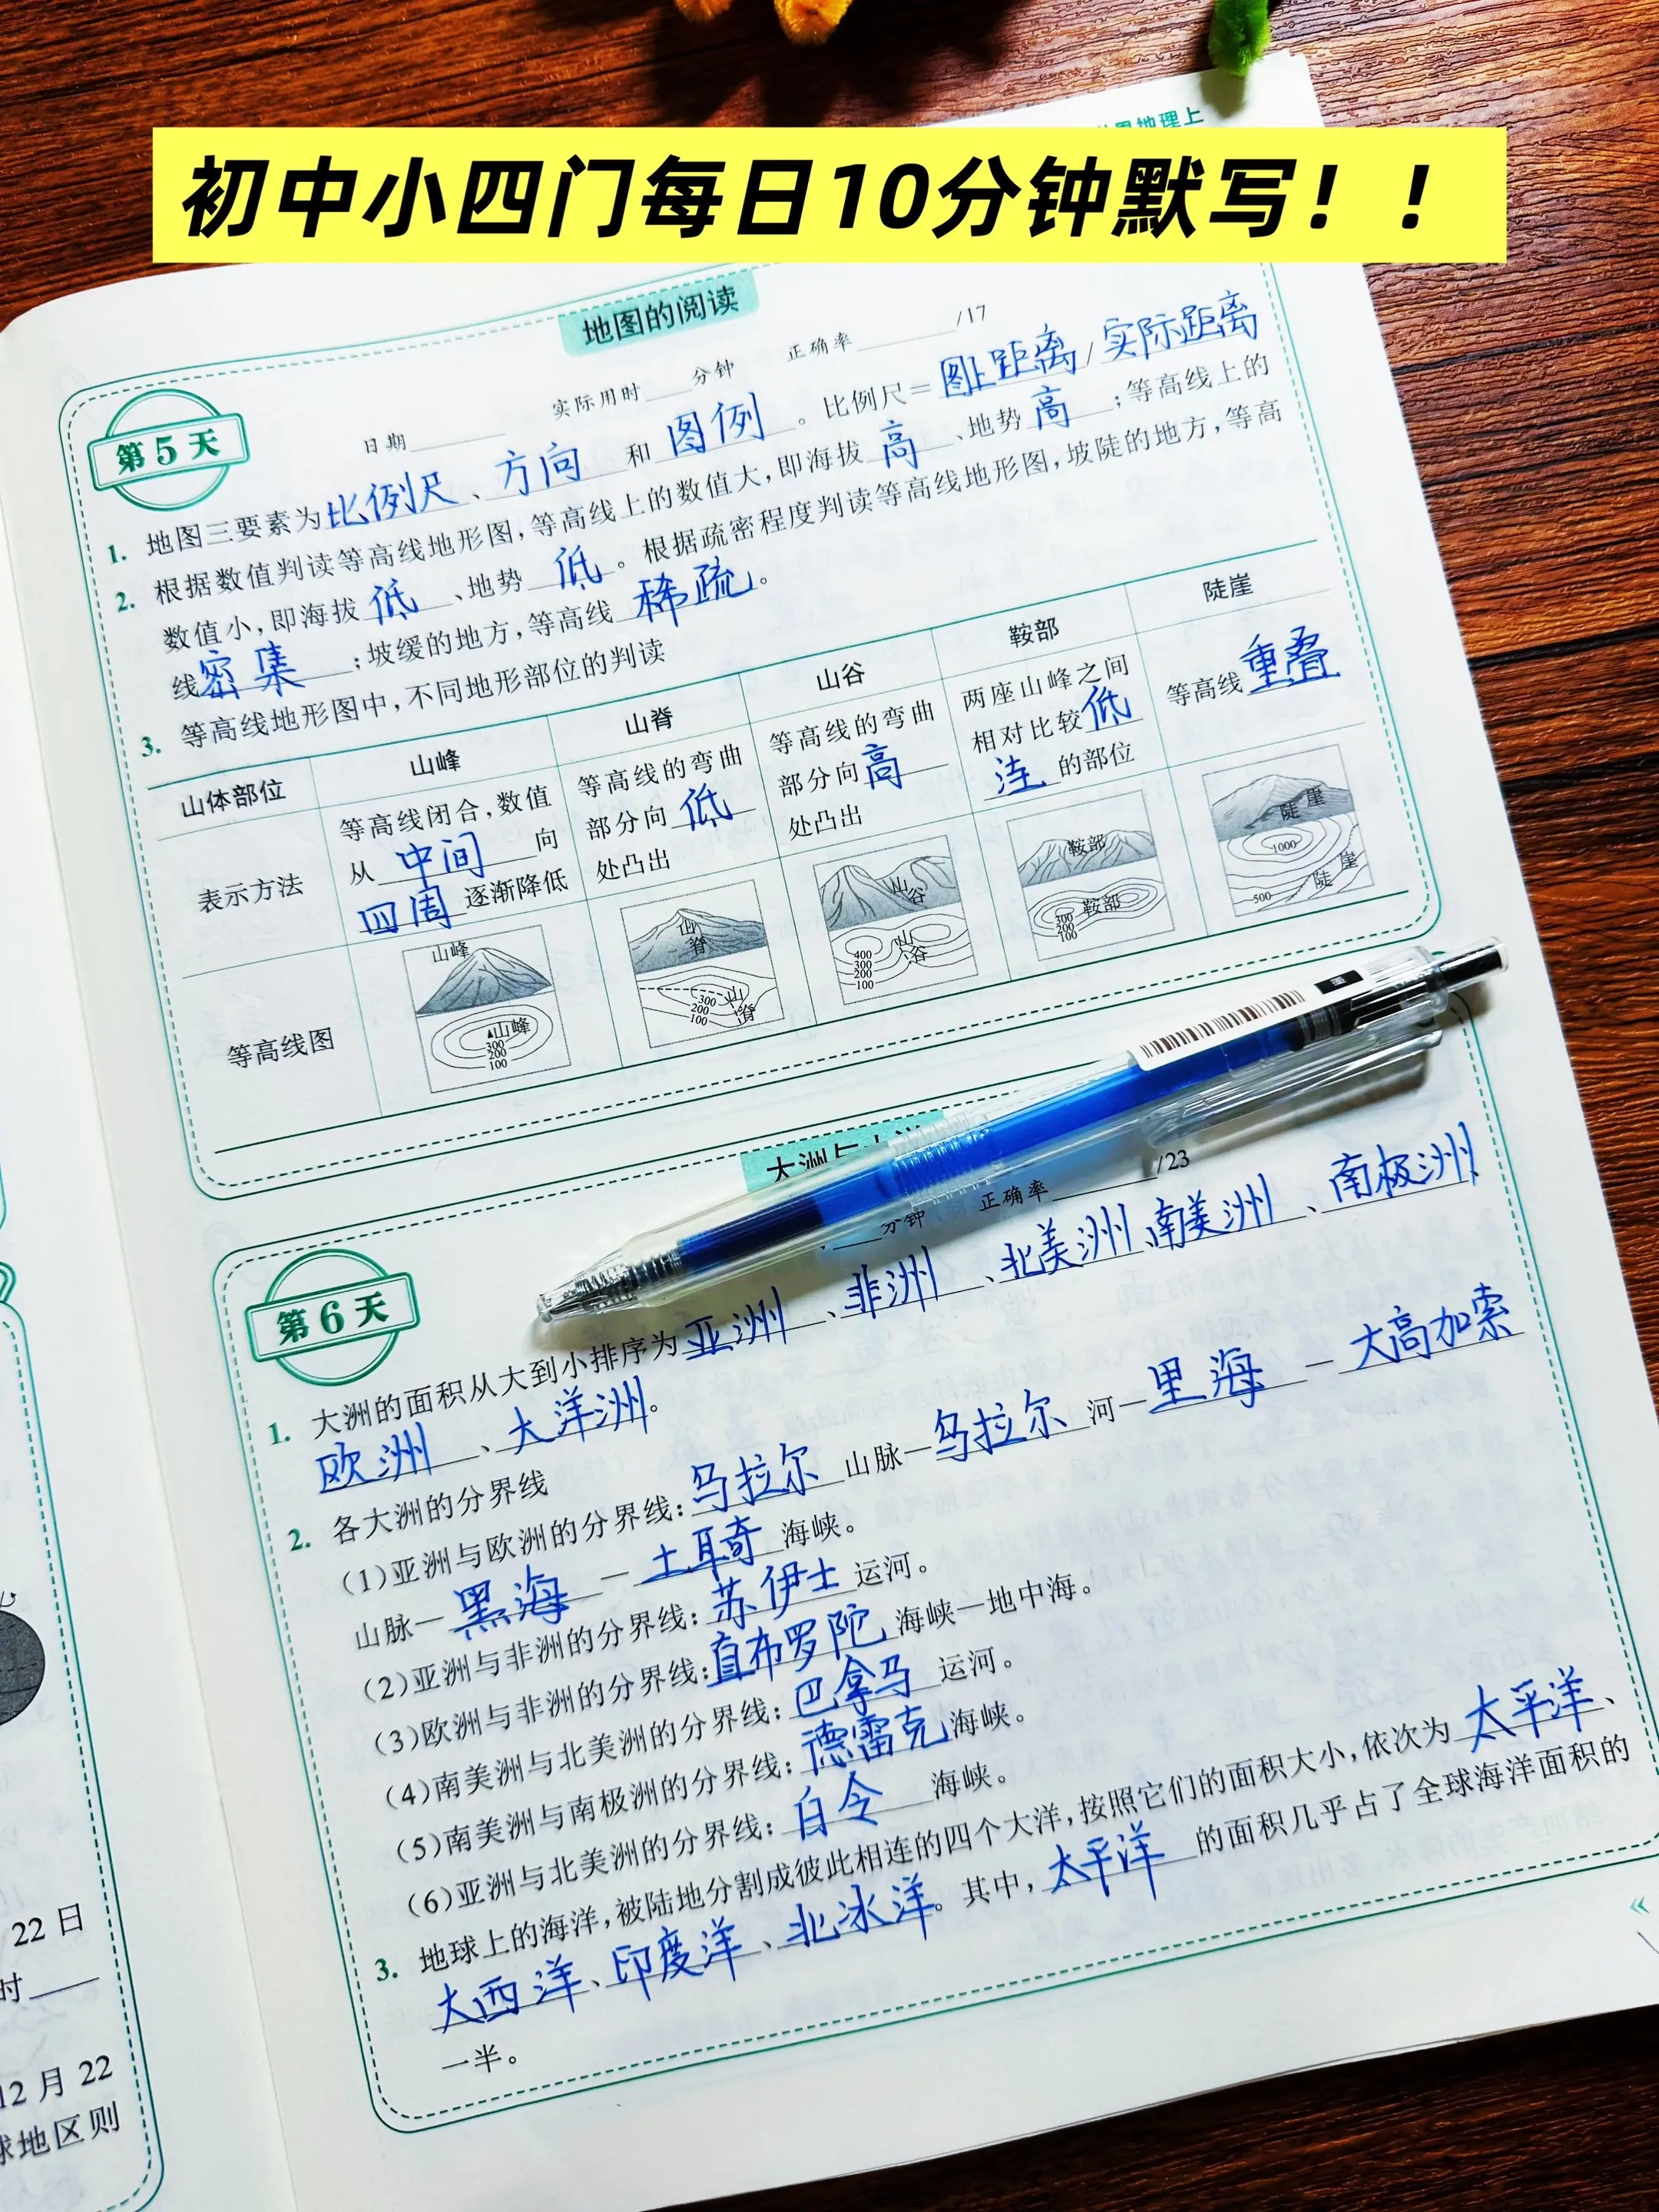 初中小四门每日10分钟默写！！
地图的阅读
第5天
日期 实际用时 分钟 正确率 /17
1. 地图三要素为比例尺、方向和图例。比例尺=图上距离/实际距离
2. 根据数值判读等高线地形图,等高线上的数值大,即海拔高、地势高;等高线上的
数值小,即海拔低、地势低。根据疏密程度判读等高线地形图,坡陡的地方,等高
线密集;坡缓的地方,等高线稀疏。
3. 等高线地形图中,不同地形部位的判读
山体部位 山峰 山脊 山谷 鞍部 陡崖
表示方法
等高线闭合,数值
从中间向
四周逐渐降低
等高线的弯曲
部分向低
处凸出
等高线的弯曲
部分向高
处凸出
两座山峰之间
相对比较低
洼的部位
等高线重叠
等高线图
山峰
山峰
300
200
100
山脊
300
200
100
山脊
山谷
400
300
200
100
山谷
鞍部
鞍部
300
200
100
陡崖
1000
500
陡崖
第6天
分钟 正确率 /23
1. 大洲的面积从大到小排序为亚洲、非洲、北美洲、南美洲、南极洲
欧洲、大洋洲。
2. 各大洲的分界线
(1)亚洲与欧洲的分界线:乌拉尔山脉—乌拉尔河—里海—大高加索
山脉—黑海—土耳奇海峡。
(2)亚洲与非洲的分界线:苏伊士运河。
(3)欧洲与非洲的分界线:直布罗陀海峡—地中海。
(4)南美洲与北美洲的分界线:巴拿马运河。
(5)南美洲与南极洲的分界线:德雷克海峡。
(6)亚洲与北美洲的分界线:白令海峡。
3. 地球上的海洋,被陆地分割成彼此相连的四个大洋,按照它们的面积大小,依次为太平洋、
大西洋、印度洋、北冰洋。其中,太平洋的面积几乎占了全球海洋面积的
一半。
22日
时
12月22
球地区则